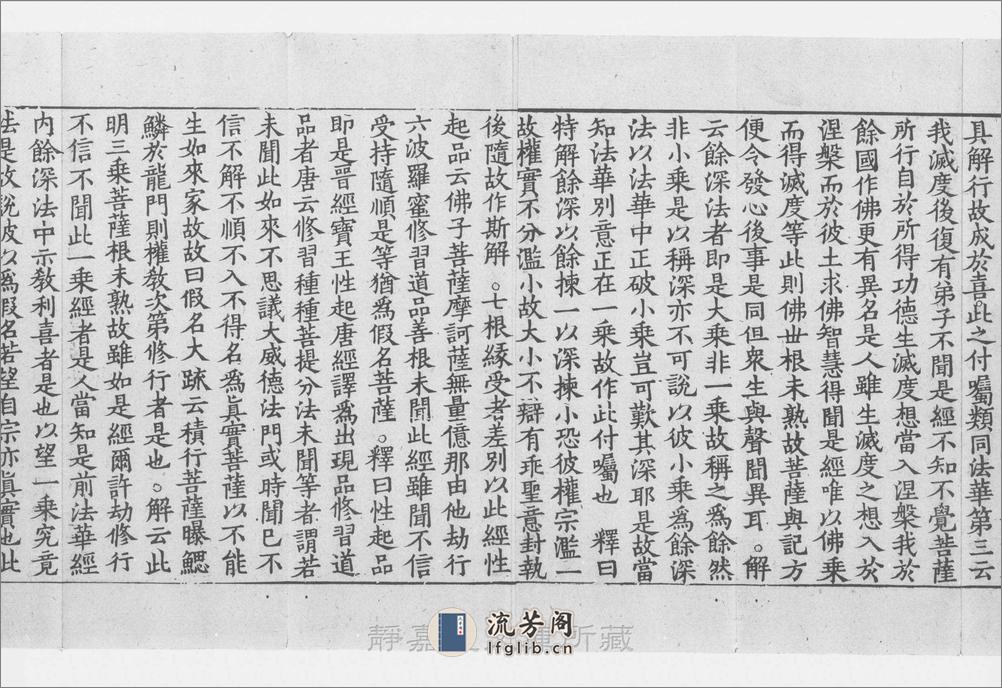 具解行故成於喜此之付囑類同法華第三云
我滅度後復有弟子不聞是經不知不覺菩薩
所行自於所得功德生滅度想當入涅槃我於
餘國作佛更有異名是人雖生滅度之想入於
涅槃而於彼土求佛智慧得聞是經唯以佛乗
而得滅度等此則佛世根未熟故菩薩與記方
便令發心後事是同但衆生與聲聞異耳。解
云餘深法者即是大乗非一乗故稱之爲餘然
非小乗是以稱深亦不可說以彼小乗爲餘深
法以法華中正破小乗豈可歎其深耶是故當
知法華別意正在一乗故作此付囑也　釋曰
特解餘深以餘揀一以深揀小恐彼權宗濫一
故權實不分濫小故大小不辯有乖聖意封執
後隨故作斯解。七根緣受者差別以此經性
起品云佛子菩薩摩訶薩無量億那由他劫行
六波羅蜜修習道品善根未聞此經雖聞不信
受持隨順是等猶爲假名菩薩。釋曰性起品
即是晉經寶王性起唐經譯爲出現品修習道
品者唐云修習種種菩提分法未聞等者謂若
未聞此如來不思議大威德法門或時聞已不
信不解不順不入不得名爲真實菩薩以不能
生如來家故故曰假名大疏云積行菩薩曝鰓
鱗於龍門則權教次第修行者是也。解云此
明三乗菩薩根未熟故雖如是經爾許劫修行
不信不聞此一乗經者是人當知是前法華經
內餘深法中示教利喜者是也以望一乗究竟
法是故說彼以爲假名若望自宗亦真實也此
静嘉
所藏
流芳阁
lfglib.cn